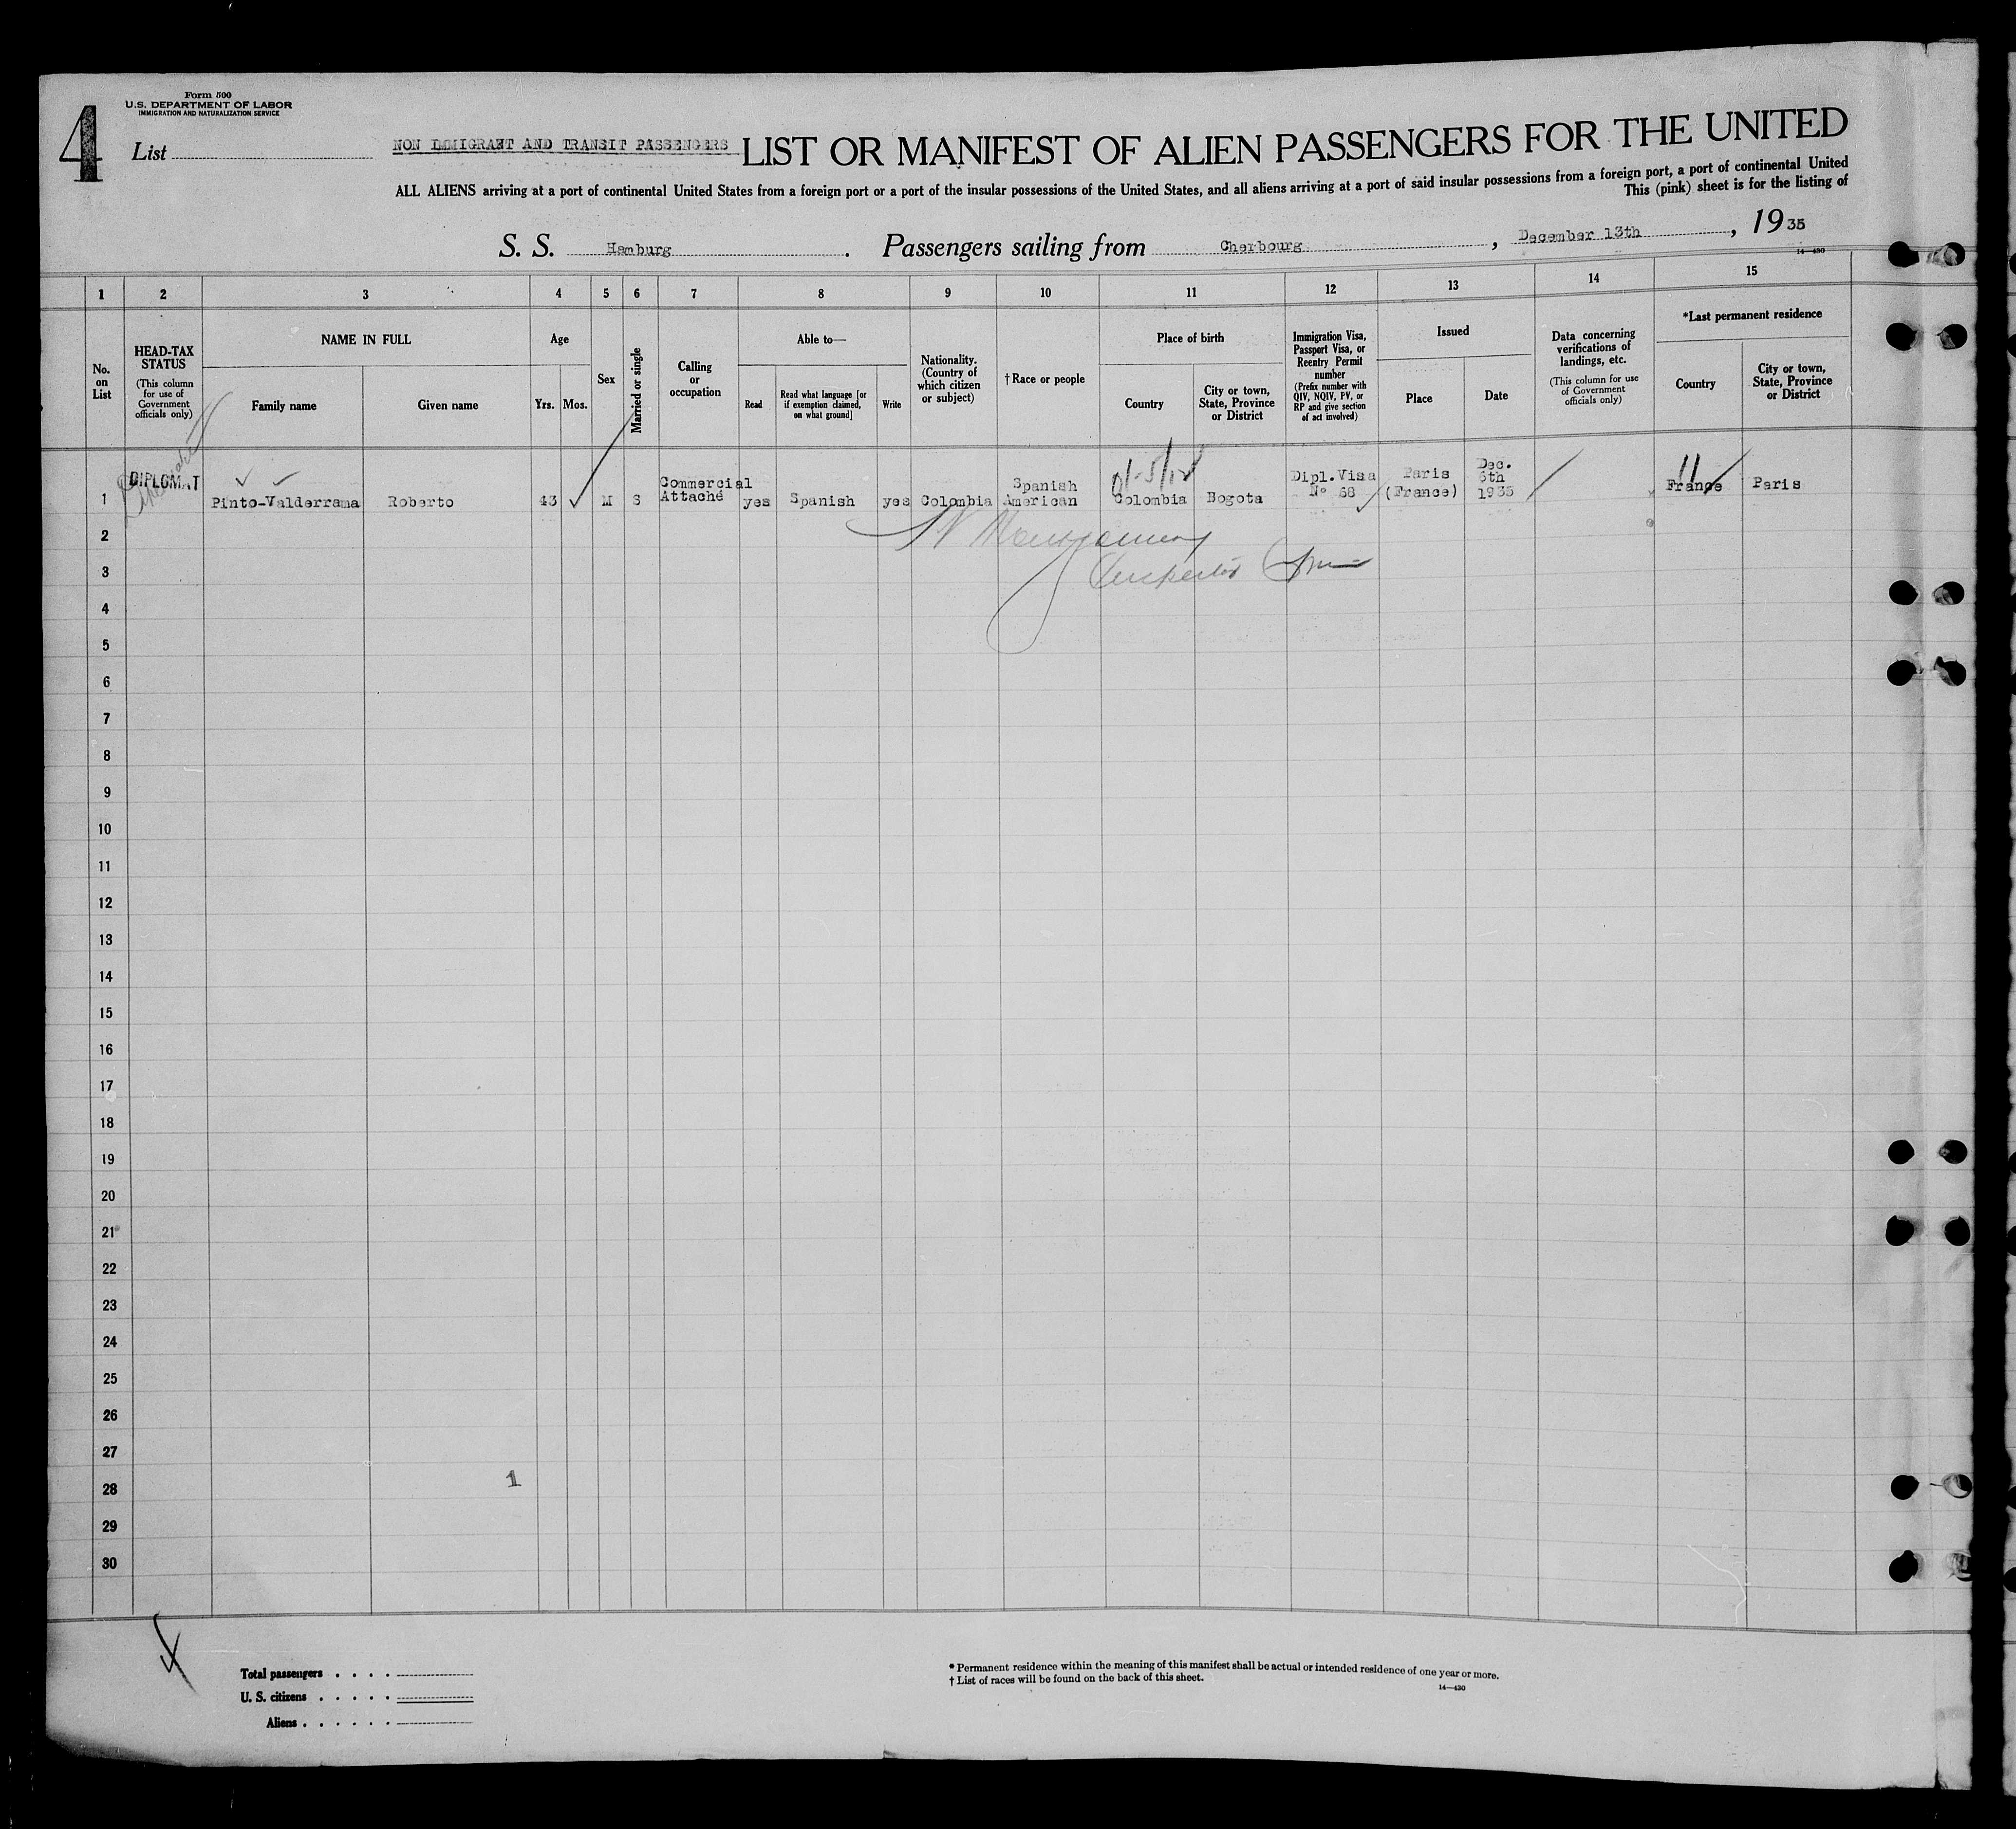 4
Form 500
U.S. DEPARTMENT OF LABOR
IMMIGRATION AND NATURALIZATION SERVICE
List
NON IMMIGRANT AND TRANSIT PASSENGERS LIST OR MANIFEST OF ALIEN PASSENGERS FOR THE UNITED
ALL ALIENS arriving at a port of continental United States from a foreign port or a port of the insular possessions of the United States, and all aliens arriving at a port of said insular possessions from a foreign port, a port of continental United
This (pink) sheet is for the listing of
S. S. Hamburg. Passengers sailing from Cherbourg, December 13th, 1935
14—430
1 2 3 4 5 6 7 8 9 10 11 12 13 14 15
No. on List
HEAD-TAX STATUS
(This column for use of Government officials only)
NAME IN FULL
Family name
Given name
Age
Yrs.
Mos.
Sex
Married or single
Calling or occupation
Able to—
Read
Read what language [or if exemption claimed, on what ground]
Write
Nationality. (Country of which citizen or subject)
†Race or people
Place of birth
Country
City or town, State, Province or District
Immigration Visa, Passport Visa, or Reentry Permit number
(Prefix number with QIV, NQIV, PV, or RP and give section of act involved)
Issued
Place
Date
Data concerning verifications of landings, etc.
(This column for use of Government officials only)
*Last permanent residence
Country
City or town, State, Province or District
1 DIPLOMAT Pinto-Valderrama Roberto 43 M S Commercial Attaché yes Spanish yes Colombia Spanish American Colombia Bogota Dipl.Visa No 68 Paris (France) Dec. 6th 1935 France Paris
2
3
4
5
6
7
8
9
10
11
12
13
14
15
16
17
18
19
20
21
22
23
24
25
26
27
1
28
29
30
Total passengers . . . .
U. S. citizens . . . . .
Aliens . . . . . .
* Permanent residence within the meaning of this manifest shall be actual or intended residence of one year or more.
† List of races will be found on the back of this sheet.
14—430